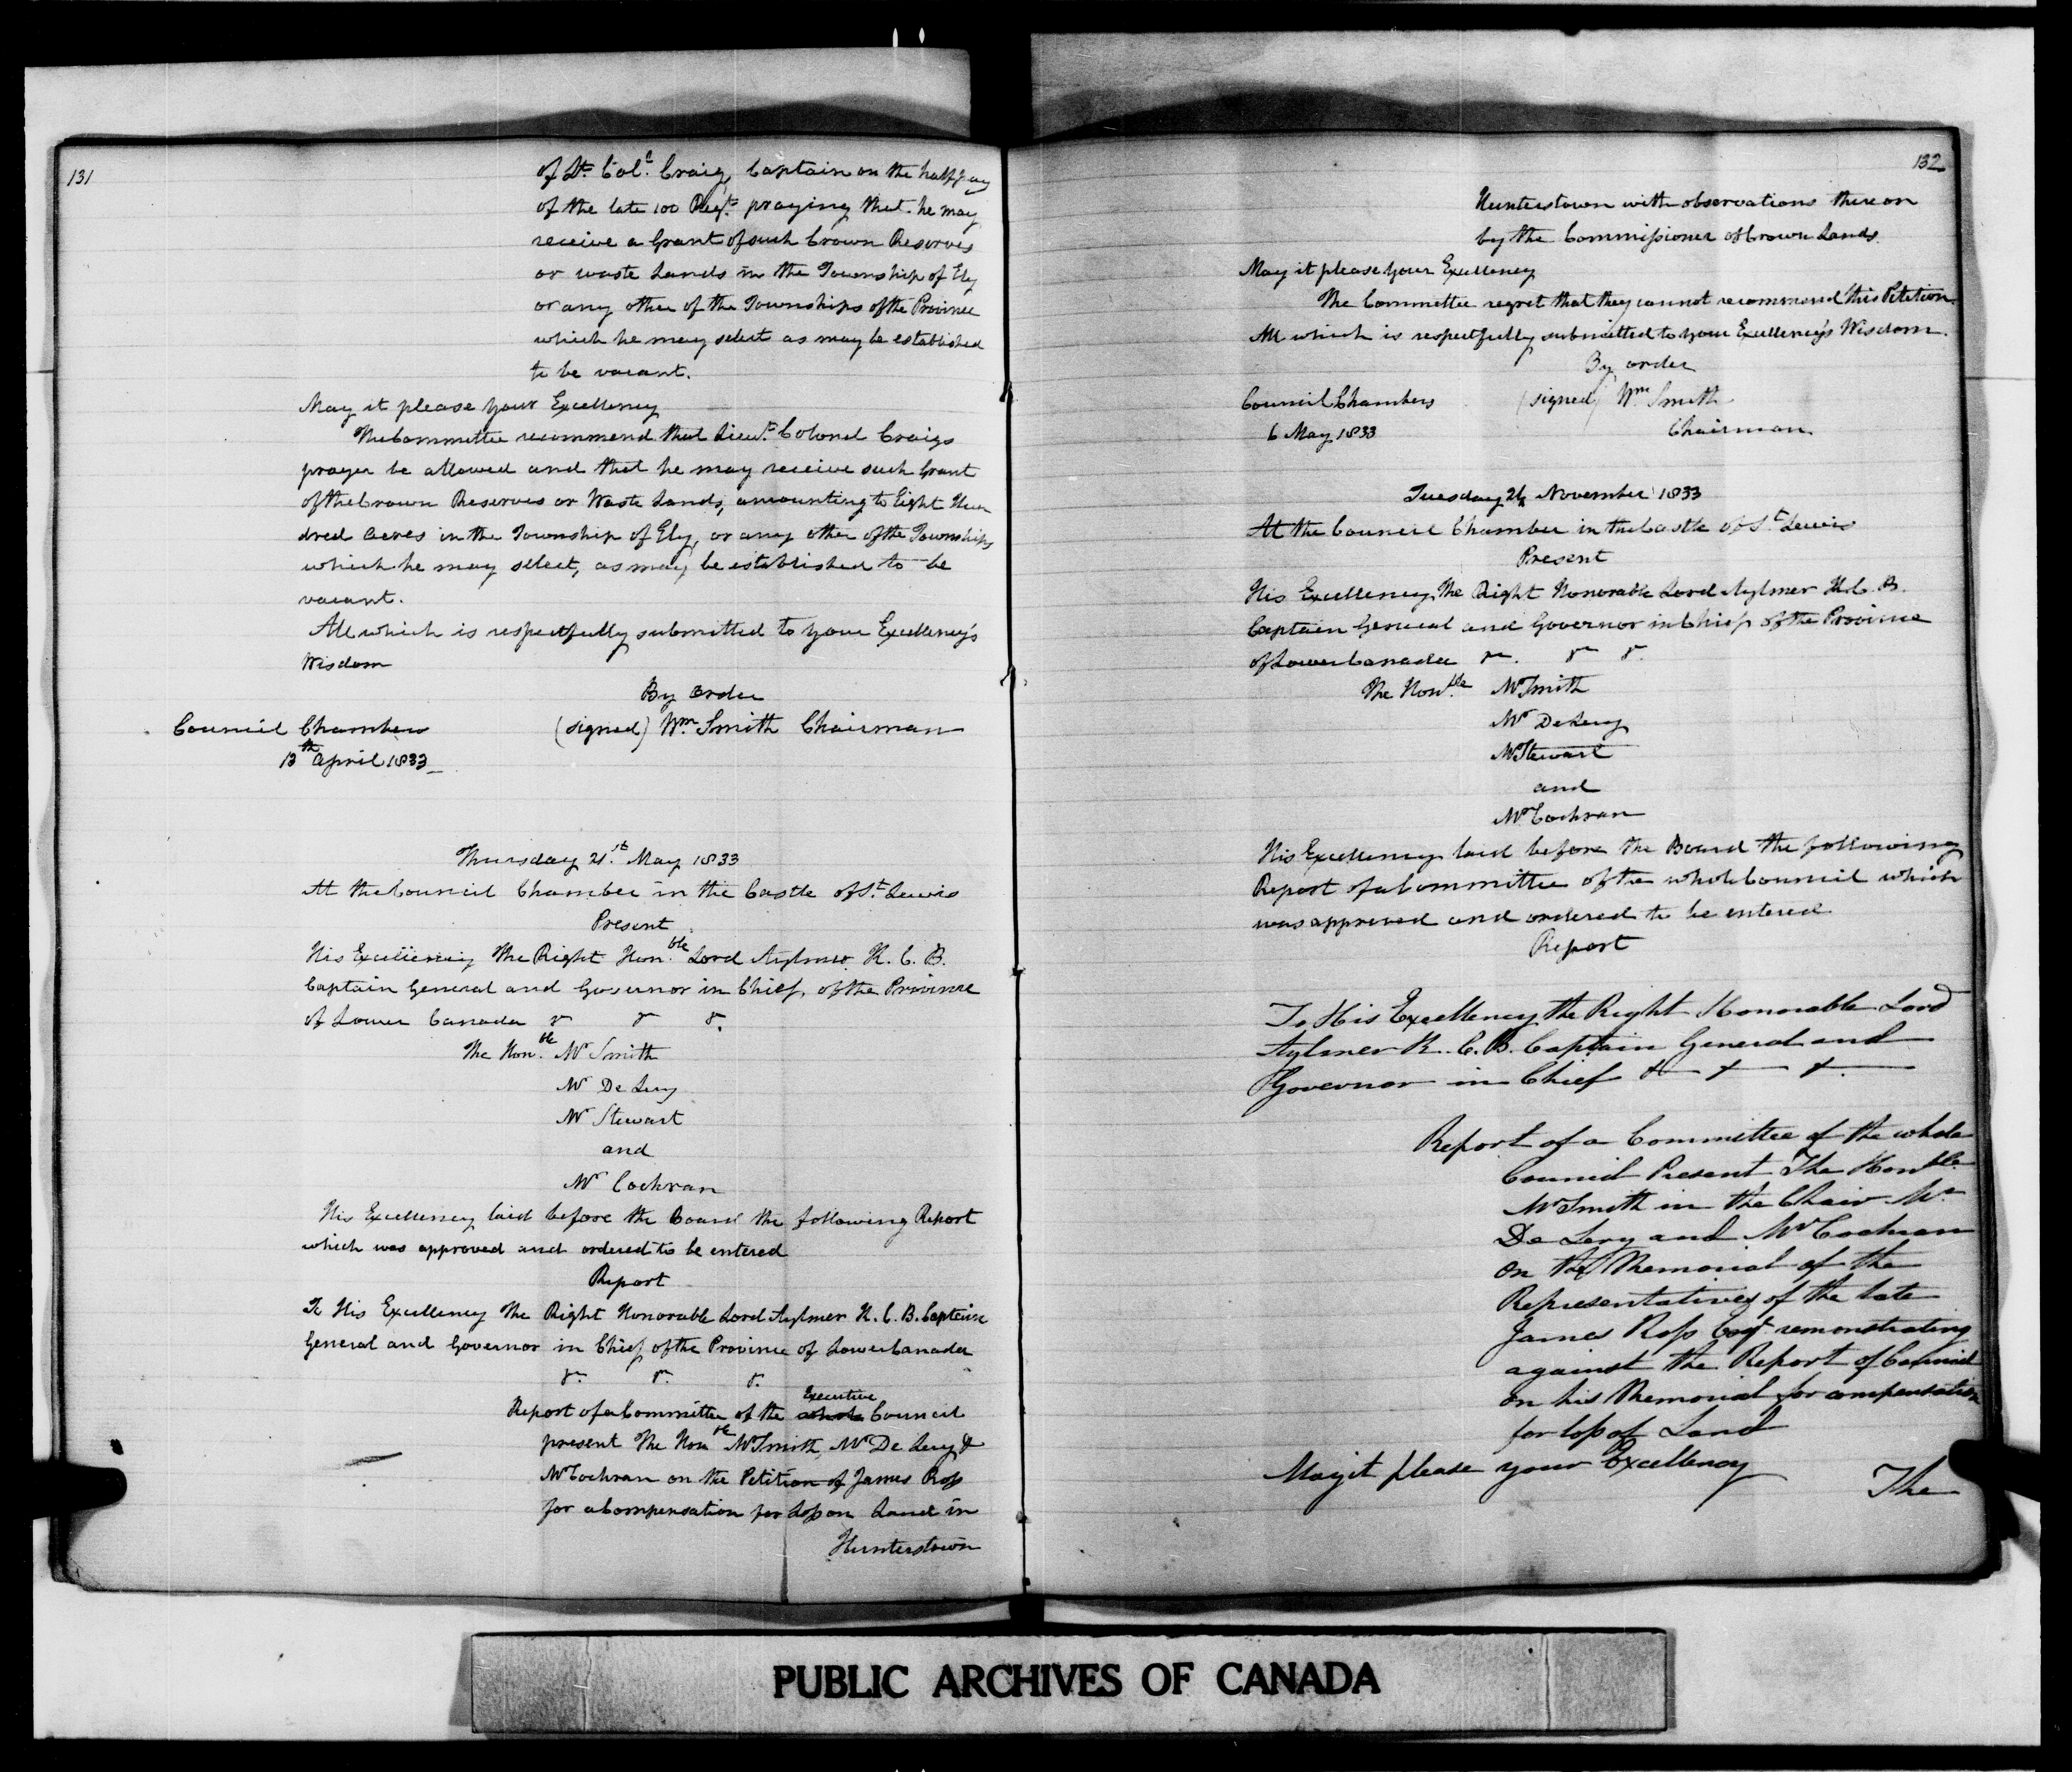 131
of Lt. Col. Craig, Captain on the half pay
of the late 100 Regt. praying that he may
receive a Grant of such Crown Reserves
or waste Lands in the Township of Ely
or any other of the Townships of the Province
which he may select as may be established
to be vacant.
May it please Your Excellency
The Committee recommend that Lieut. Colonel Craigs
prayer be allowed and that he may receive such Grant
of the Crown Reserves or Waste Lands, amounting to Eight Hun
dred acres in the Township of Ely, or any other of the Townships
which he may select, as may be established to be
vacant.
All which is respectfully submitted to your Excellency's
Wisdom
By order
Council Chambers (signed) Wm. Smith Chairman
13th April 1833
Thursday 21st May 1833
At the Council Chamber in the Castle of St. Lewis
Present
His Excellency The Right Honble Lord Aylmer K. C. B.
Captain General and Governor in Chief, of the Province
of Lower Canada &c &c &c.
The Honble Mr Smith
Mr De Lery
Mr Stewart
and
Mr Cochran
His Excellency laid before the Board the following Report
which was approved and ordered to be entered
Report
To His Excellency The Right Honorable Lord Aylmer K. C. B. Captain
General and Governor in Chief of the Province of Lower Canada
&c. &c. &c.
Report of a Committee of the whole Executive Council
present The Honble Mr Smith, Mr De Lery &
Mr Cochran on the Petition of James Ross
for a Compensation for Loss on Land in
Hunterstown
132
Hunterstown with observations thereon
by the Commissioner of Crown Lands.
May it please Your Excellency
The Committee regret that they cannot recommend this Petition.
All which is respectfully submitted to your Excellency's Wisdom.
By order
Council Chambers (signed) Wm Smith
6 May 1833 Chairman
Tuesday November 1833
At the Council Chamber in the Castle of St Lewis
Present
His Excellency, The Right Honorable Lord Aylmer K. C. B.
Captain General and Governor in Chief of the Province
of Lower Canada &c. &c &c.
The Honble Mr Smith
Mr De Lery
Mr Stewart
and
Mr Cochran
His Excellency laid before the Board the following
Report of a Committee of the whole Council which
was approved and ordered to be entered.
Report
To His Excellency the Right Honorable Lord
Aylmer K. C. B. Captain General and
Governor in Chief &c &c &c.
Report of a Committee of the whole
Council Present The Honble
Mr Smith in the Chair Mr
De Lery and Mr Cochran
on the Memorial of the
Representatives of the late
James Ross Esqr. remonstrating
against the Report of Council
on his Memorial for compensation
for loss of Land
May it please your Excellency
The
PUBLIC ARCHIVES OF CANADA